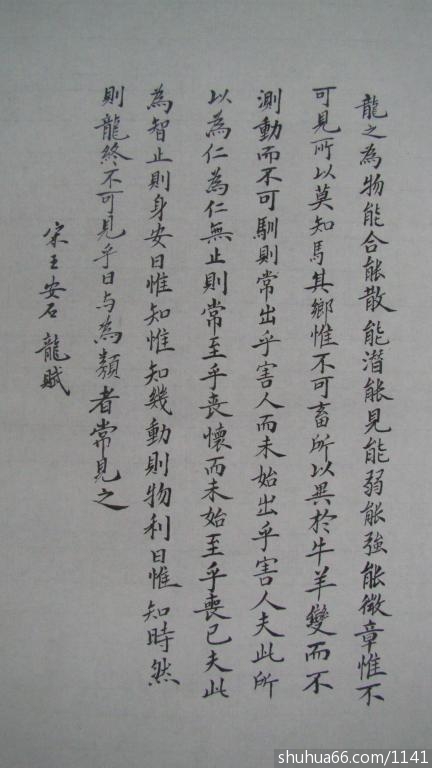 龍之為物能合能散能潛能見能弱能強能微章惟不
可見所以莫知馬其鄉惟不可畜所以異於牛羊變而不
測動而不可馴則常出乎害人而未始出乎害人夫此所
以為仁為仁無止則常至乎喪懷而未始至乎喪已夫此
為智止則身安曰惟知惟知幾動則物利曰惟知時然
則龍終不可見乎曰与為類者常見之
宋王安石龍賦
shuhua66.com/1141